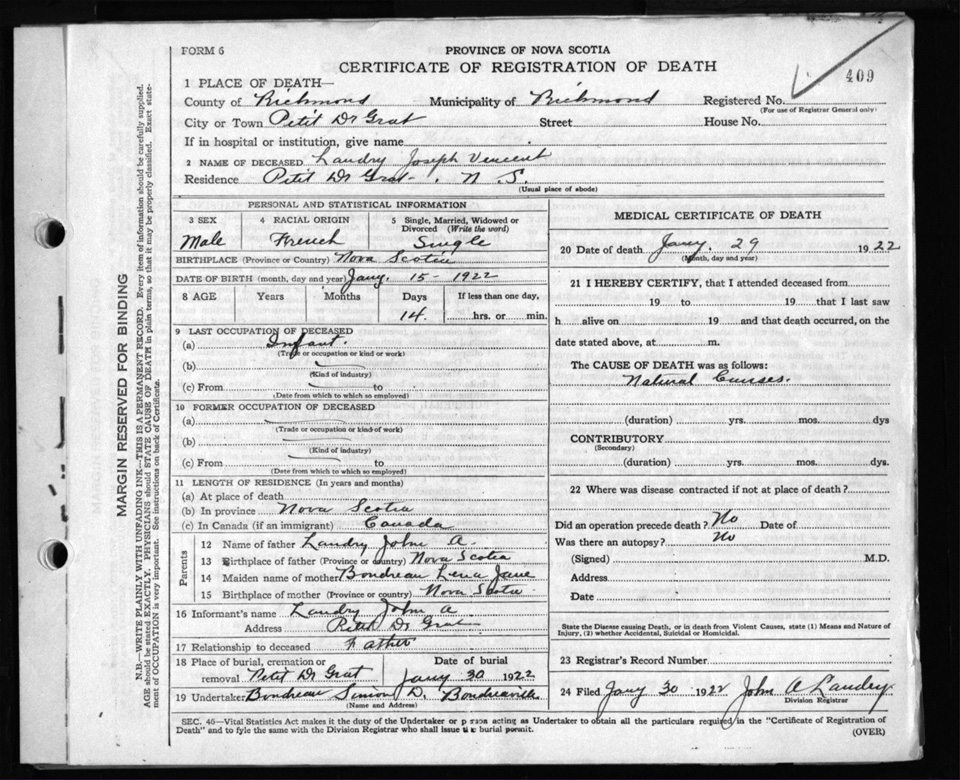 FORM 6
PROVINCE OF NOVA SCOTIA
CERTIFICATE OF REGISTRATION OF DEATH
409
1 PLACE OF DEATH—
County of Richmond Municipality of Richmond Registered No.
(For use of Registrar General only)
City or Town Petit Dr Grat Street House No.
If in hospital or institution, give name
2 NAME OF DECEASED Landry Joseph Vencent
Residence Petit Dr Grat . N. S.
(Usual place of abode)
PERSONAL AND STATISTICAL INFORMATION
3 SEX 4 RACIAL ORIGIN 5 Single, Married, Widowed or Divorced (Write the word)
Male French Single
BIRTHPLACE (Province or Country) Nova Scotia
DATE OF BIRTH (month, day and year) Jany. 15 - 1922
8 AGE Years Months Days If less than one day,
14. hrs. or min.
9 LAST OCCUPATION OF DECEASED
(a) Infant.
(Trade or occupation or kind or work)
(b)
(Kind of industry)
(c) From to
(Date from which to which so employed)
10 FORMER OCCUPATION OF DECEASED
(a)
(Trade or occupation or kind of work)
(b)
(Kind of industry)
(c) From to
(Date from which to which so employed)
11 LENGTH OF RESIDENCE (In years and months)
(a) At place of death
(b) In province Nova Scotia
(c) In Canada (if an immigrant) Canada
Parents
12 Name of father Landry John A.
13 Birthplace of father (Province or country) Nova Scotia
14 Maiden name of mother Bondreau Lena Jane
15 Birthplace of mother (Province or country) Nova Scotia
16 Informant's name Landry John A
Address Petit Dr Grat
17 Relationship to deceased Father
18 Place of burial, cremation or removal Petit Dr Grat
Date of burial
Jany 30 1922
19 Undertaker Bondreau Simon D. Bondreauville
(Name and Address)
MEDICAL CERTIFICATE OF DEATH
20 Date of death Jany. 29 1922
(Month, day and year)
21 I HEREBY CERTIFY, that I attended deceased from
19 to 19 that I last saw
h alive on 19 and that death occurred, on the
date stated above, at m.
The CAUSE OF DEATH was as follows:
Natural Causes.
(duration) yrs. mos. dys
CONTRIBUTORY
(Secondary)
(duration) yrs. mos. dys.
22 Where was disease contracted if not at place of death?
Did an operation precede death? No Date of
Was there an autopsy? No
(Signed) M.D.
Address
Date
State the Disease causing Death, or in death from Violent Causes, state (1) Means and Nature of
Injury, (2) whether Accidental, Suicidal or Homicidal.
23 Registrar's Record Number
24 Filed Jany 30 1922 John A Landry
Division Registrar
SEC. 45—Vital Statistics Act makes it the duty of the Undertaker or person acting as Undertaker to obtain all the particulars required in the "Certificate of Registration of
Death" and to fyle the same with the Division Registrar who shall issue the burial permit.
(OVER)
MARGIN RESERVED FOR BINDING
N.B.—WRITE PLAINLY WITH UNFADING INK—THIS IS A PERMANENT RECORD. Every item of information should be carefully supplied.
AGE should be stated EXACTLY. PHYSICIANS should STATE CAUSE OF DEATH in plain terms, so that it may be properly classified. Exact state-
ment of OCCUPATION is very important. See instructions on back of Certificate.